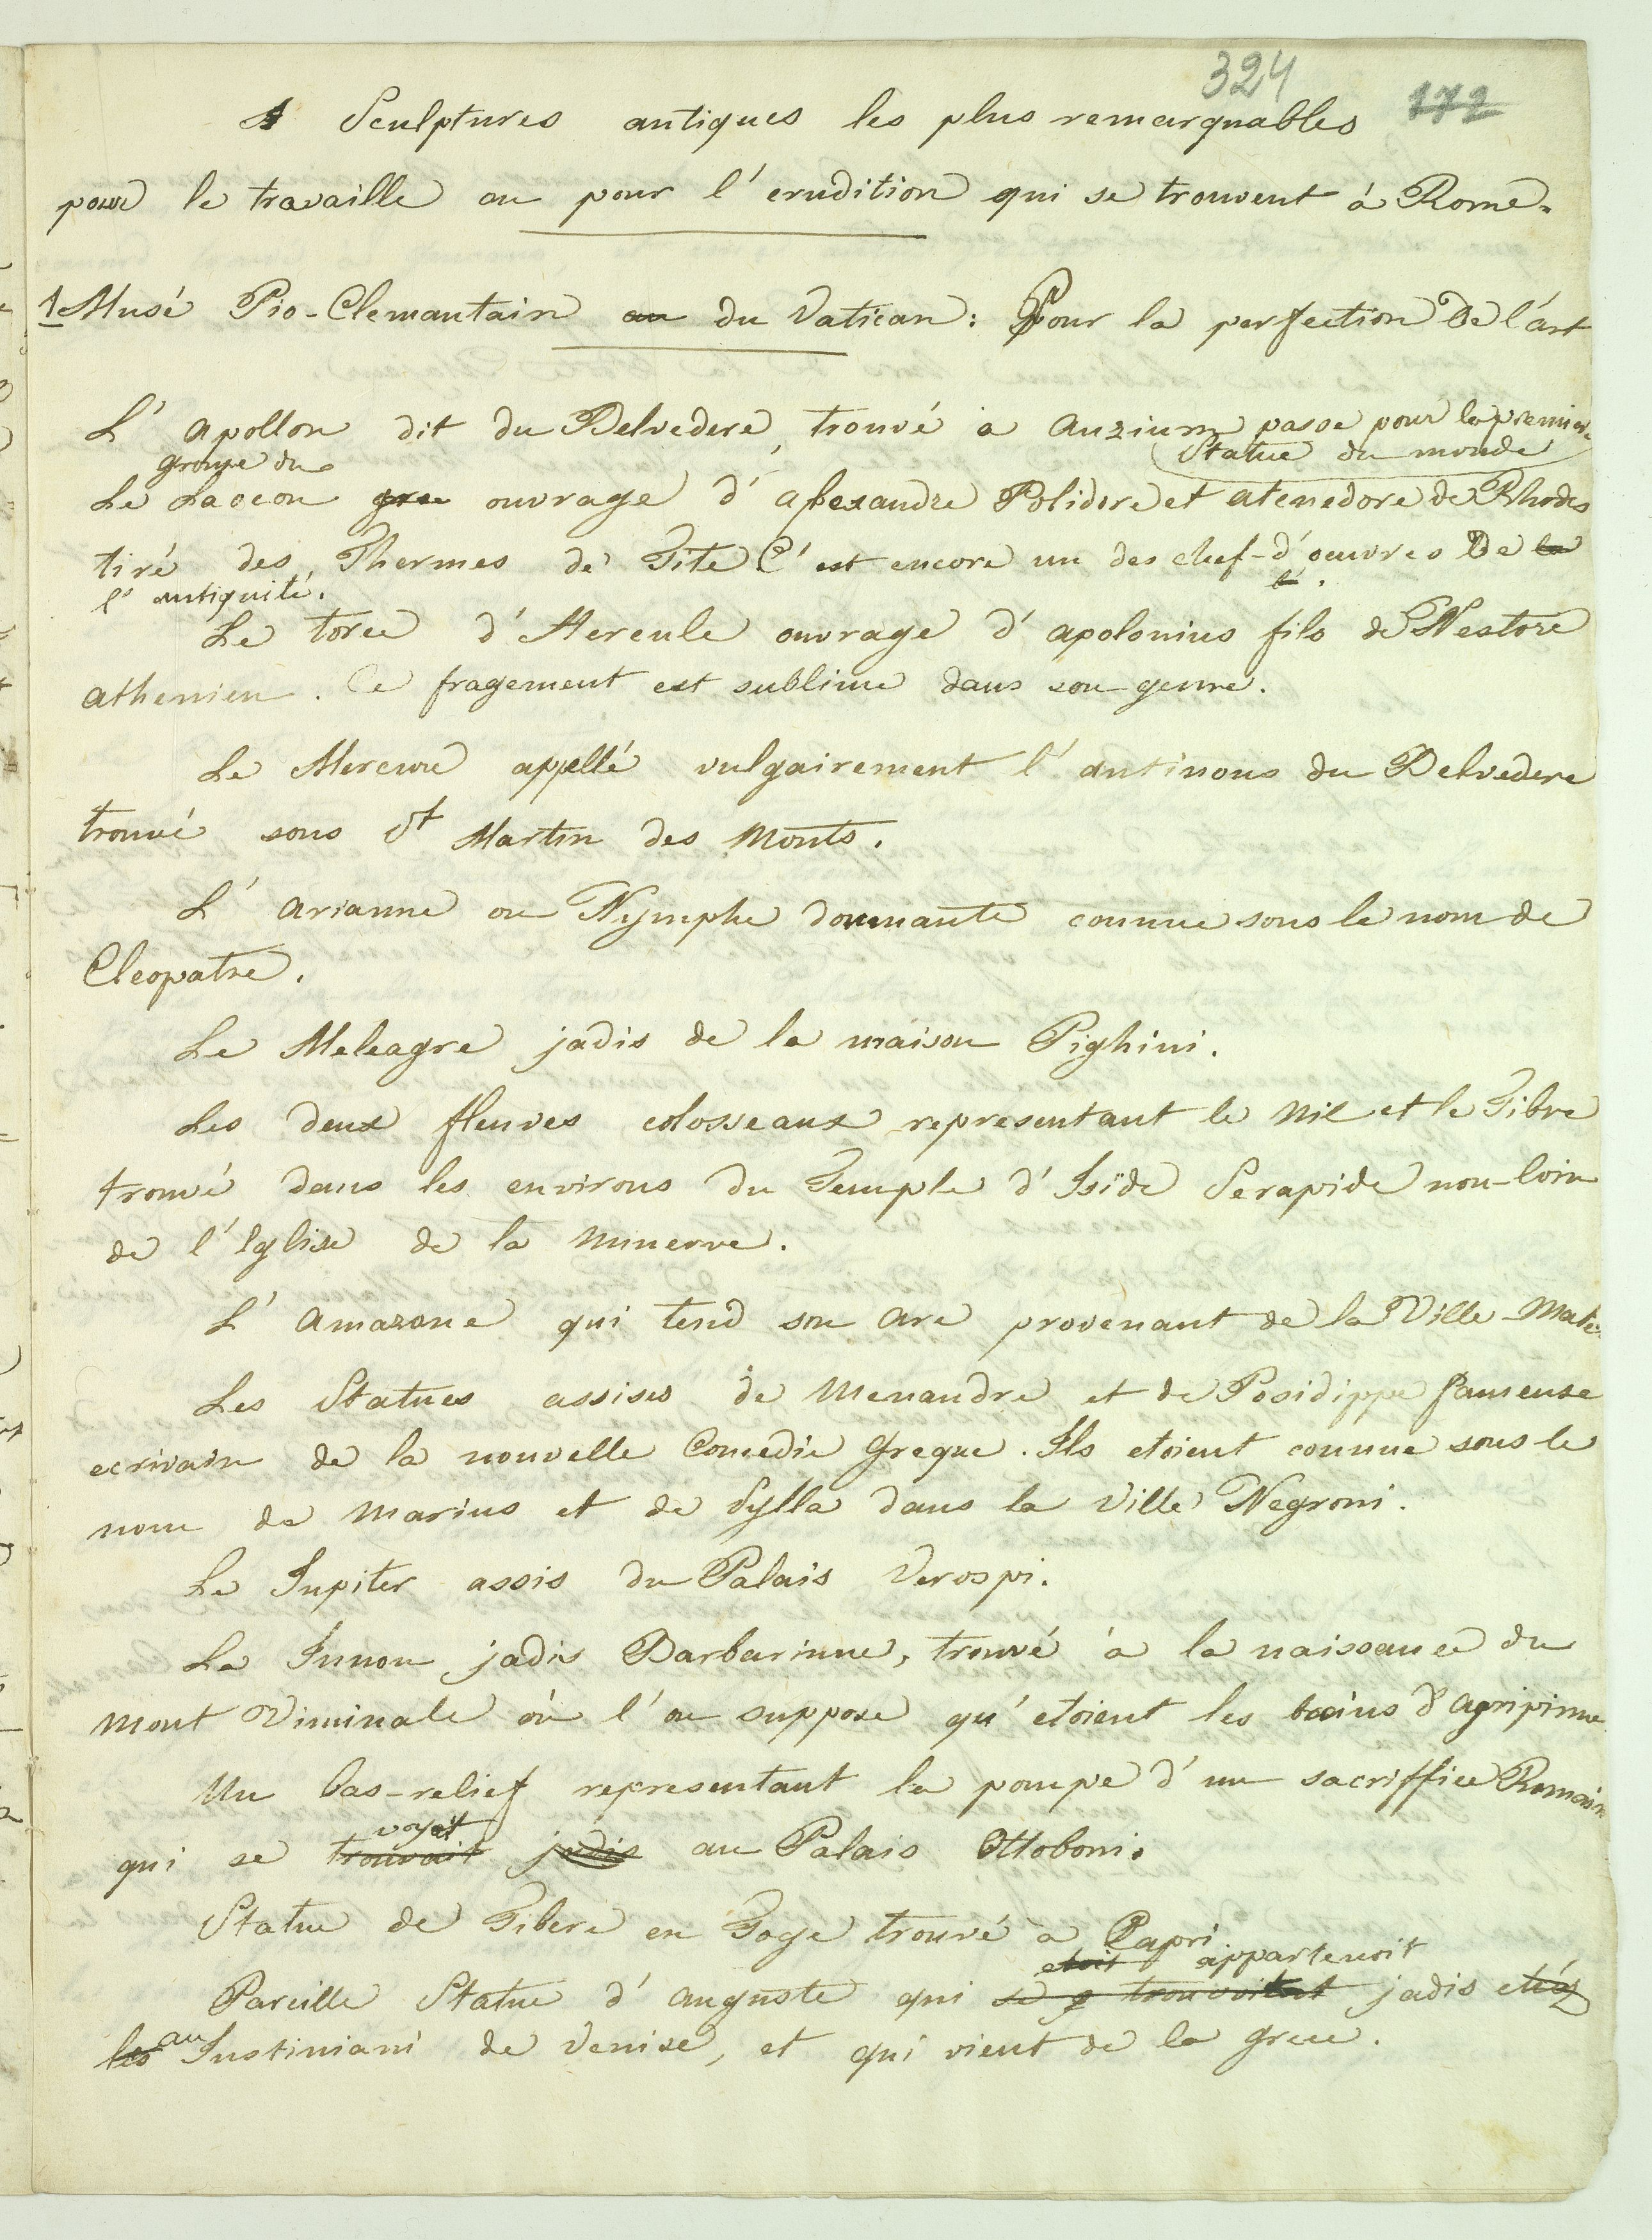 324 172
Sculptures antiques les plus remarquables
pour le travaille ou pour l'erudition qui se trouvent à Rome.
1 Musé Pio-Clemantain au du Vatican: Pour la perfection De l'art
L' Apollon dit du Belvedere, trouvé à Anzium passe pour la premiere
Statue du monde
groupe du
Le Laocon gro ouvrage d' Alexandre Polidore et atenedore de Rhodes
tiré des Thermes de Tite C'est encore un des chef-d'œuvres De la
l' antiquité.
Le torce d' Hercule ouvrage d' apolonius fils de Nestore
athenien. Ce fragement est sublime dans son genre.
Le Mercure appellé vulgairement l' antinous du Belvedere
trouvé sous St Martin des Monts.
L' Arianne ou Nymphe dormante connue sous le nom de
Cleopatre.
Le Meleagre jadis de la maison Pighini.
Les deux fleuves colosseaux representant le Nil et le Tibre
trouvé dans les environs du Temple d' Iside Serapide non-loin
de l' Eglise de la Minerve.
L' Amazone qui tend son arc provenant de la Ville-Matei
Les Statues assises de Menandre et de Posidippe fameuse
ecrivain de la nouvelle Comedie Greque. Ils etoient connue sous le
nom de Marius et de Sylla dans la Ville Negroni.
Le Jupiter assis du Palais Verospi.
La Junon jadis Barbarinne, trouvé à la naissance du
Mont Viminale où l' on suppose qu' etoient les bains d'Agripinne
Un bas-relief representant la pompe d' un sacriffice Romain
voyoit
qui se trouvoit jadis au Palais Ottoboni.
Statue de Tibere en Toge trouvé à Capri
etoit appartenoit
Pareille Statue d' Auguste qui se y trouvoit jadis chéz
les au Justiniani de Venise, et qui vient de la Grece.